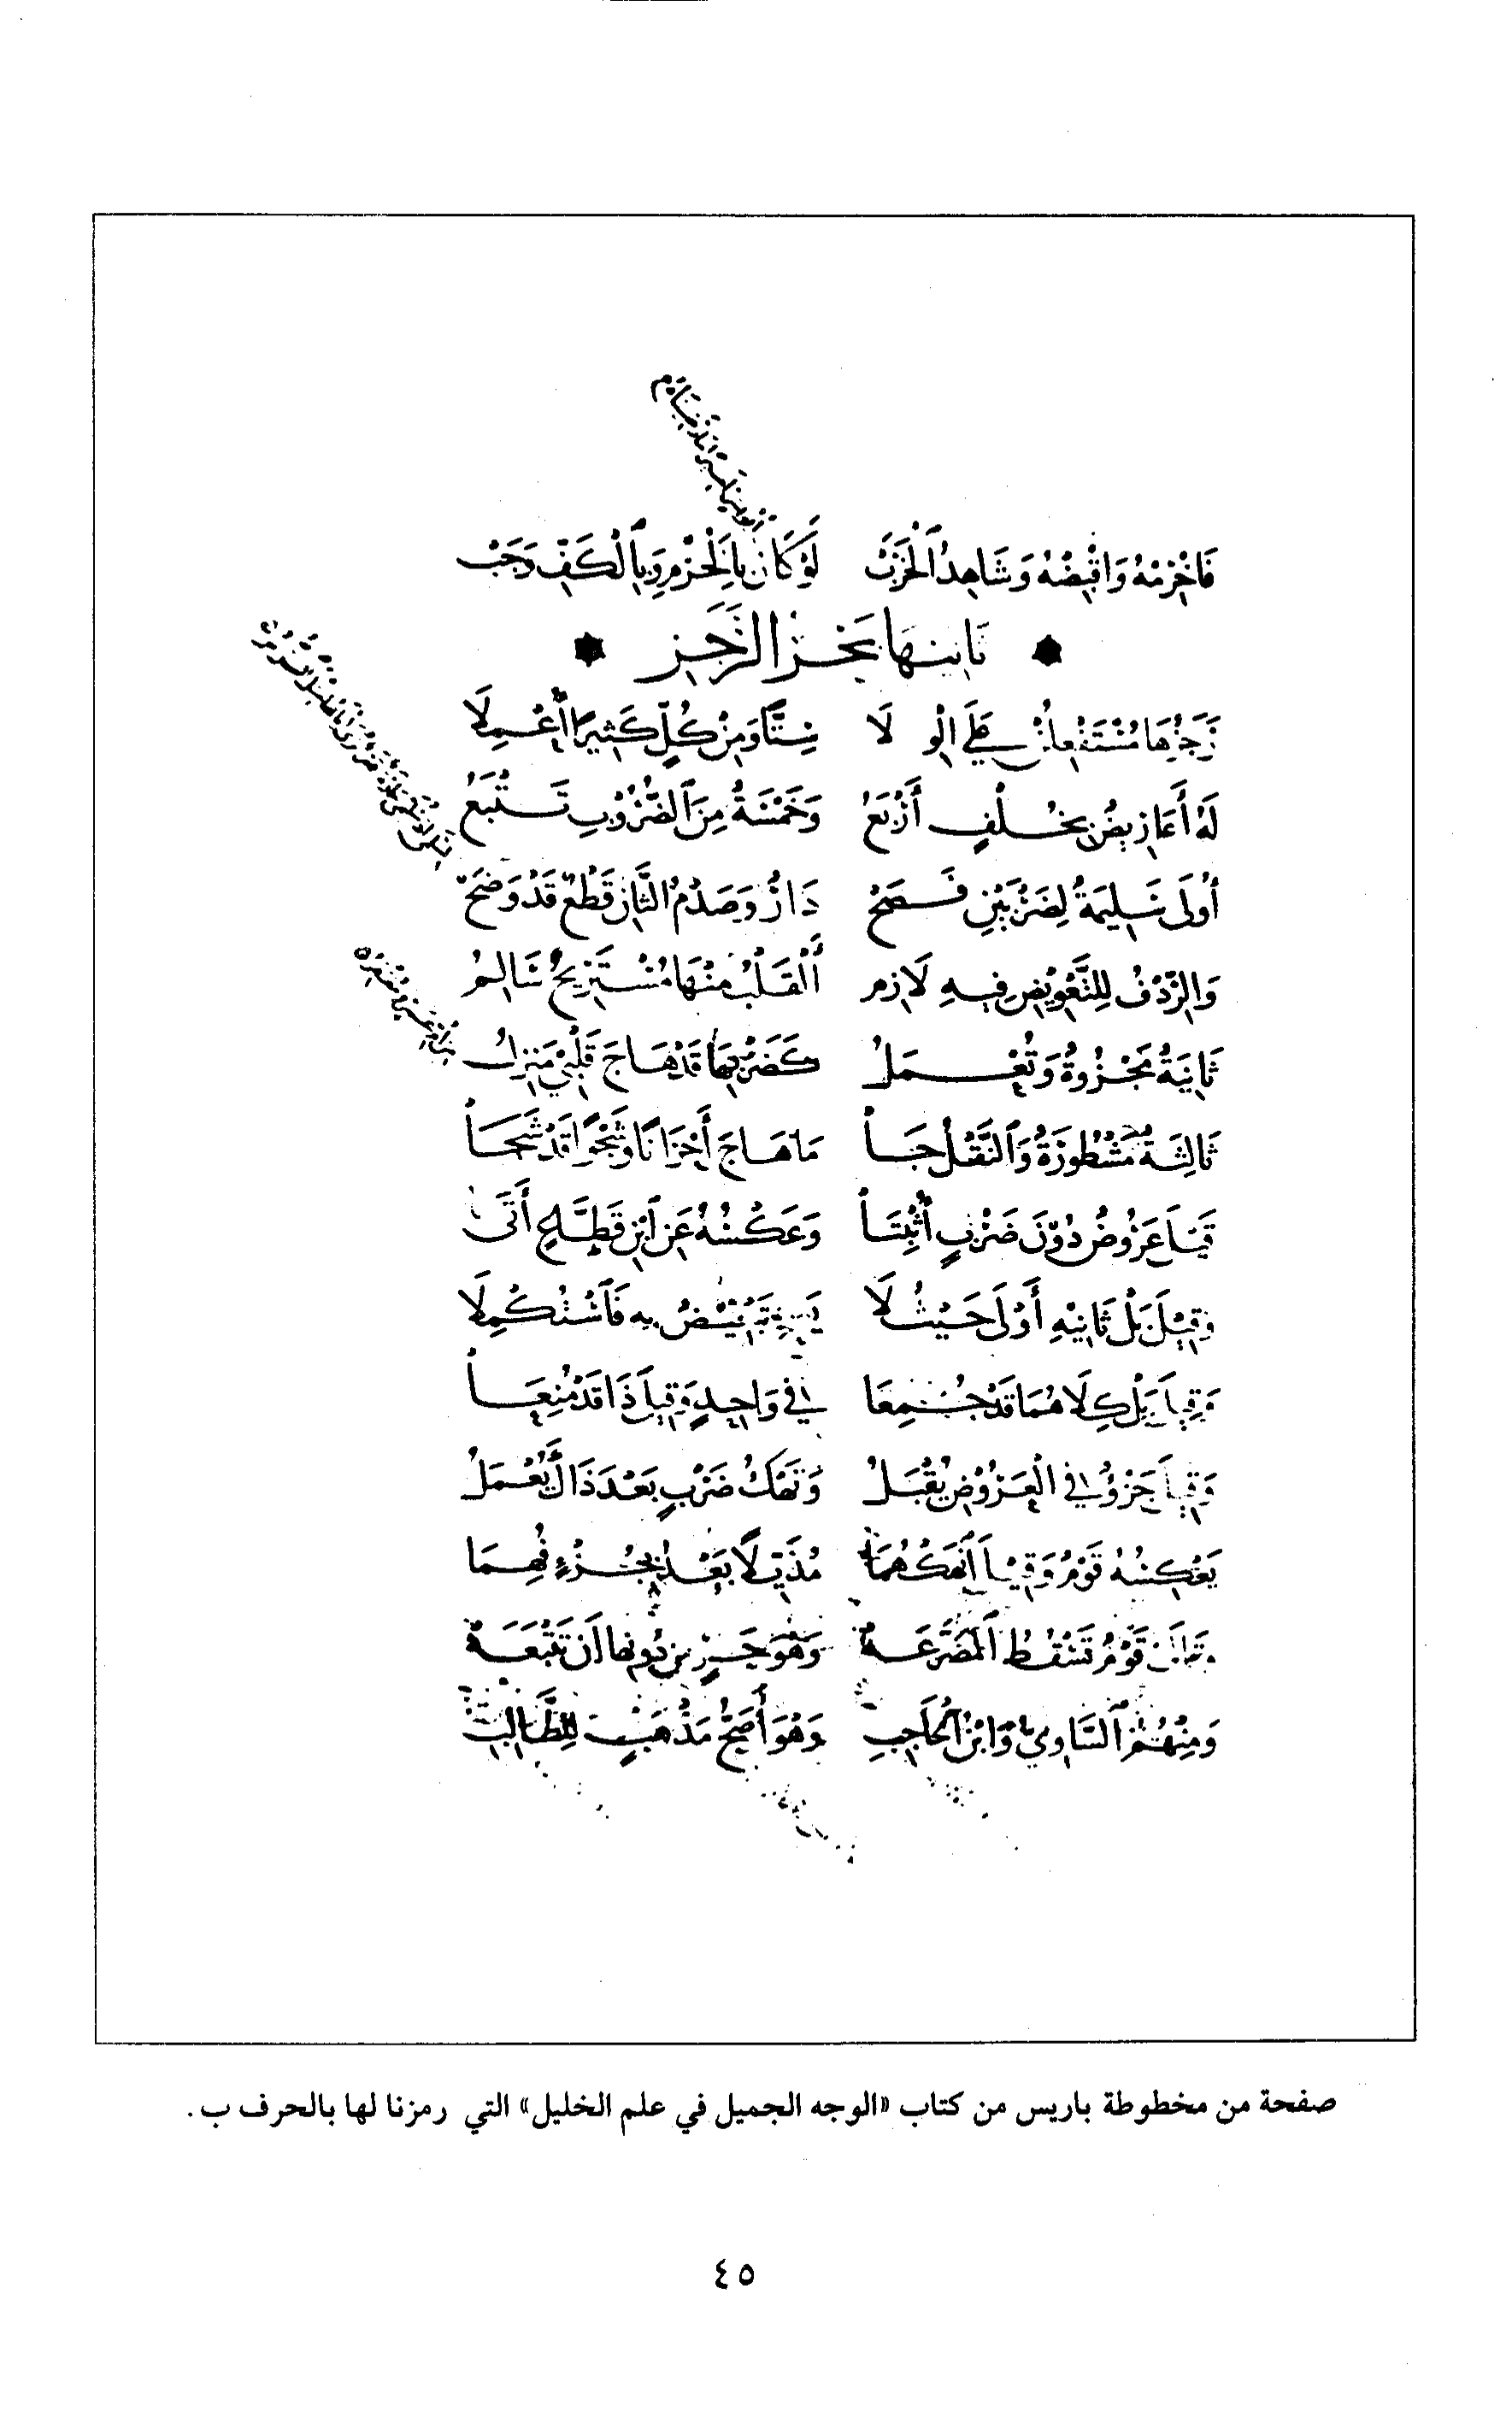 فَاخْرِمْهُ وَاقْبِضْهُ وَشَاهِدُ الْخَرَبْ لَوْ كَانَ بِالْخَرْمِ وَبِالْكَفِّ وَجَبْ
ثَانِيهَا بَحْرُ الرَّجَزِ
رَجَزُهَا مُسْتَفْعِلُنْ عَلَى الْوِلَا سِتًّا وَمِنْ كُلٍّ كَثِيرًا أُعْمِلَا
لَهُ أَعَارِيضُ بِخُلْفٍ أَرْبَعُ وَخَمْسَةٌ مِنَ الضُّرُوبِ تَتْبَعُ
أُولَى سَلِيمَةٌ لِضَرْبَيْنِ فَصَحْ دَارٌ وَصَدْمُ الثَّانِ قَطْعٌ قَدْ وَضَحْ
وَالرِّدْفُ لِلتَّعْوِيضِ فِيهِ لَازِم أَلْقَلْبُ مِنْهَا مُسْتَرِيحٌ سَالِمُ
ثَانِيَةٌ مَجْزُوَّةٌ وَتُعْمَلُ كَضَرْبِهَا قَدْ هَاجَ قَلْبِي مَنْزِلُ
ثَالِثَةٌ مَشْطُورَةٌ وَالنَّقْلُ جَا مَا هَاجَ أَحْزَانًا وَشَجْوًا قَدْ شَجَا
قِيلَ عَرُوضٌ دُونَ ضَرْبٍ أُثْبِتَا وَعَكْسُهُ عَنِ ابْنِ قَطَّاعٍ أَتَى
وَقِيلَ بَلْ ثَانِيْهِ أَوْلَى حَيْثُ لَا به فَاسْتُكْمِلَا
وَقِيلَ بَلْ كِلَاهُمَا قَدْ جُمِعَا فِي وَاحِدٍ وَقِيلَ ذَا قَدْ مُنِعَا
وَقِيلَ جَزْؤٌ فِي الْعَرُوضِ يُقْبَلُ وَنَهْكُ ضَرْبٍ بَعْدَ ذَاكَ يُعْمَلُ
يَعْكِسُهُ قَوْمٌ وَقِيلَ انْهَكْهُمَا مُذَيِّلًا بَعْدُ بِجُزْءٍ فُهِمَا
قَوْمٌ تَسْقُطُ الْمُصَرَّعَهْ وَهْوَ من دُونِهَا أَنْ تَتْبَعَهْ
وَمِنْهُمُ السَّاوِيُّ وَابْنُ الْحَاجِبِ وَهْوَ أَصَحُّ مَذْهَبٍ لِلطَّالِبِ
صفحة من مخطوطة باريس من كتاب «الوجه الجميل في علم الخليل» التي رمزنا لها بالحرف ب.
٤٥